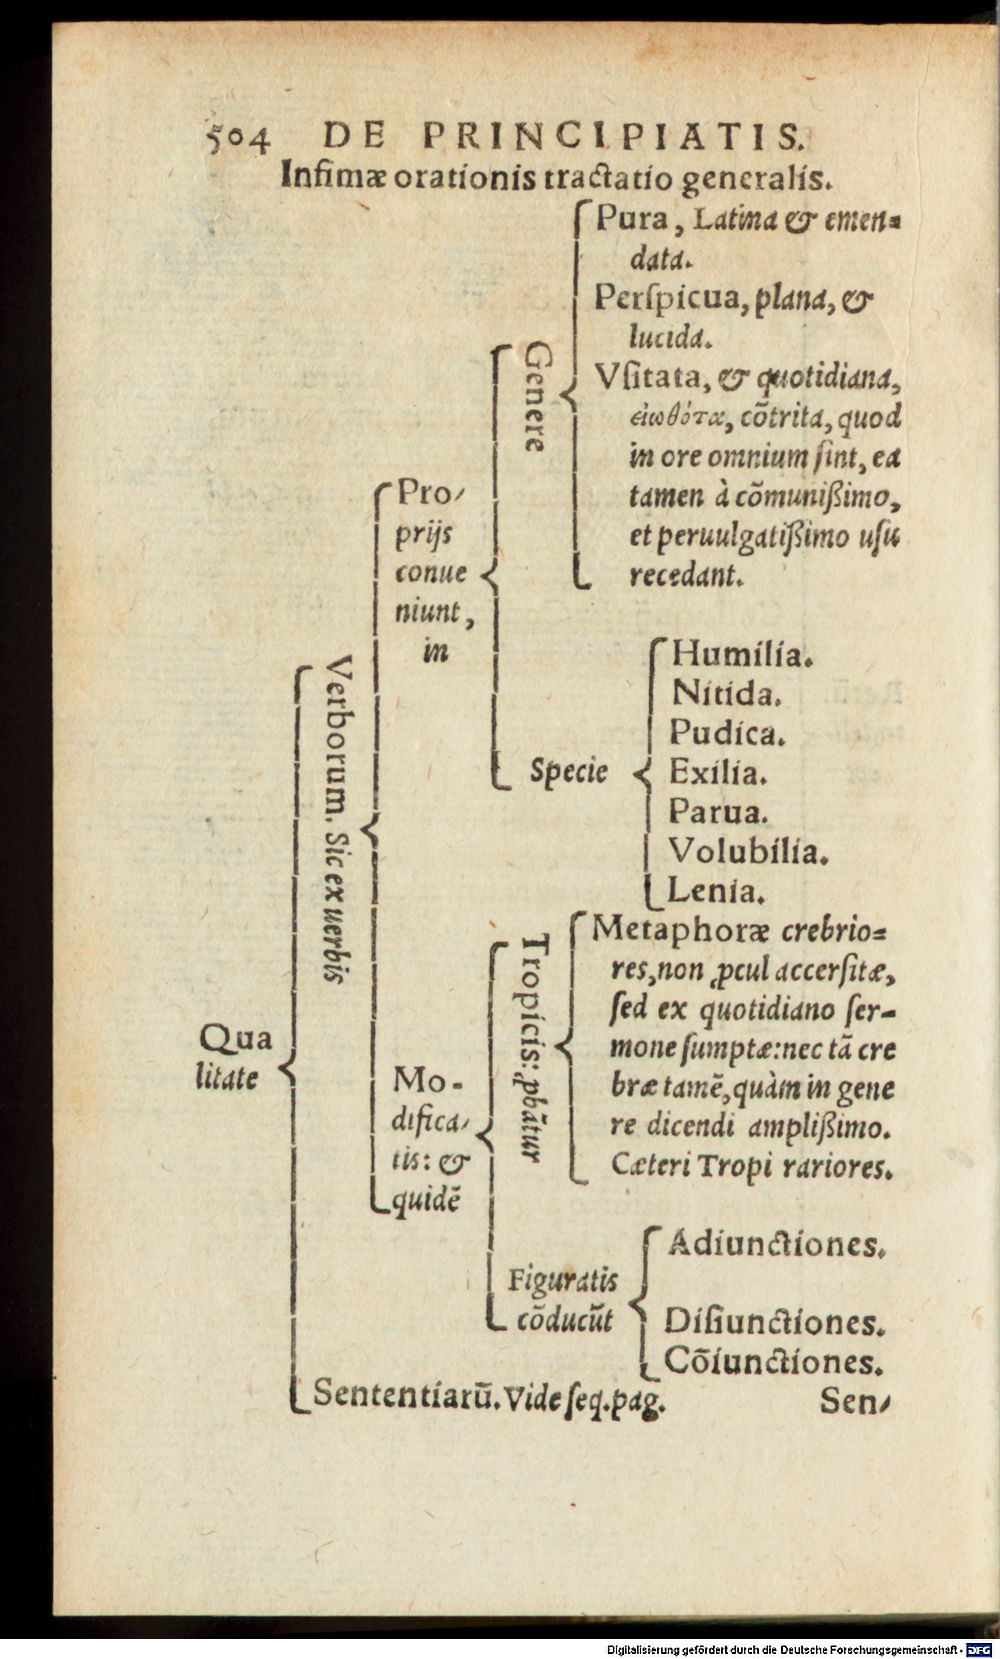 504 DE PRINCIPIATIS.
Infimæ orationis tractatio generalis.
Qua
litate
Verborum. Sic ex uerbis
Pro/
prijs
conue
niunt,
in
Genere
Pura, Latina & emen=
data.
Perſpicua, plana, &
lucida.
Vſitata, & quotidiana,
εἰωθότα, cõtrita, quod
in ore omnium ſint, ea
tamen à cõmunißimo,
et peruulgatißimo uſu
recedant.
Specie
Humilia.
Nitida.
Pudica.
Exilia.
Parua.
Volubilia.
Lenia.
Mo-
difica/
tis: &
quidẽ
Tropicis: ꝓbãtur
Metaphoræ crebrio=
res, non ꝓcul accerſitæ,
ſed ex quotidiano ſer-
mone ſumptæ: nec tã cre
bræ tamẽ, quàm in gene
re dicendi amplißimo.
Cæteri Tropi rariores.
Figuratis
cõducũt
Adiunctiones.
Diſiunctiones.
Cõiunctiones.
Sententiarũ. Vide ſeq. pag.
Sen/
Digitalisierung gefördert durch die Deutsche Forschungsgemeinschaft - DFG